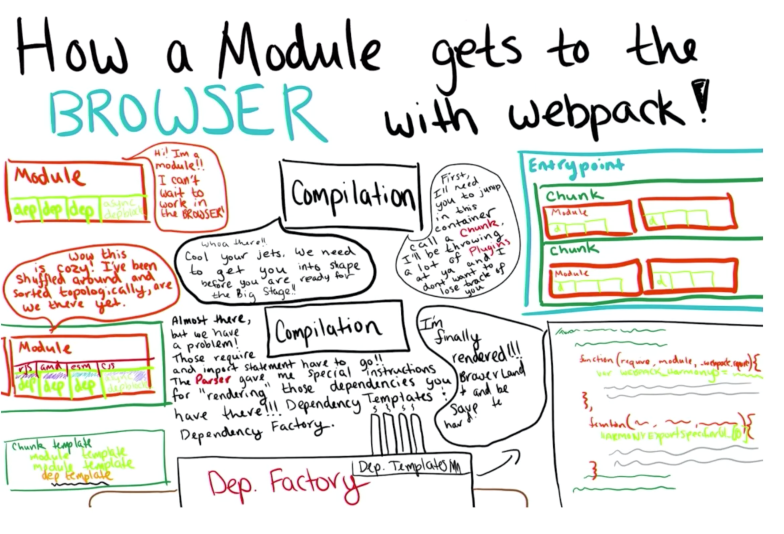 How a Module gets to the
BROWSER with webpack!
Module
dep dep dep async
Hi! I'm a
module!!
I can't
wait to
work in
the BROWSER!
Compilation
Whoa there!!
Cool your jets. We need
to get you into shape
before you are ready for
the Big Stage!!
First,
I'll need
you to jump
in this
container
call a Chunk.
I'll be throwing
a lot of Plugins
at ya and I
dont want to
lose track of
you
Entrypoint
Chunk
Module
Chunk
Module
Wow this
is cozy! I've been
shuffled around and
sorted topologically, are
we there yet.
Module
rjs amd esm cjs
dep dep dep
Almost there,
but we have
a problem!
Those require
and import statement have to go!!
The Parser gave me special instructions
for "rendering" those dependencies you
have there!!! Dependency Templates :
Dependency Factory.
Compilation
I'm
finally
rendered!!!
and be
chunk template
module template
module template
dep template
Dep. Templates
Dep. Factory
function (require, module,
},
function (
}